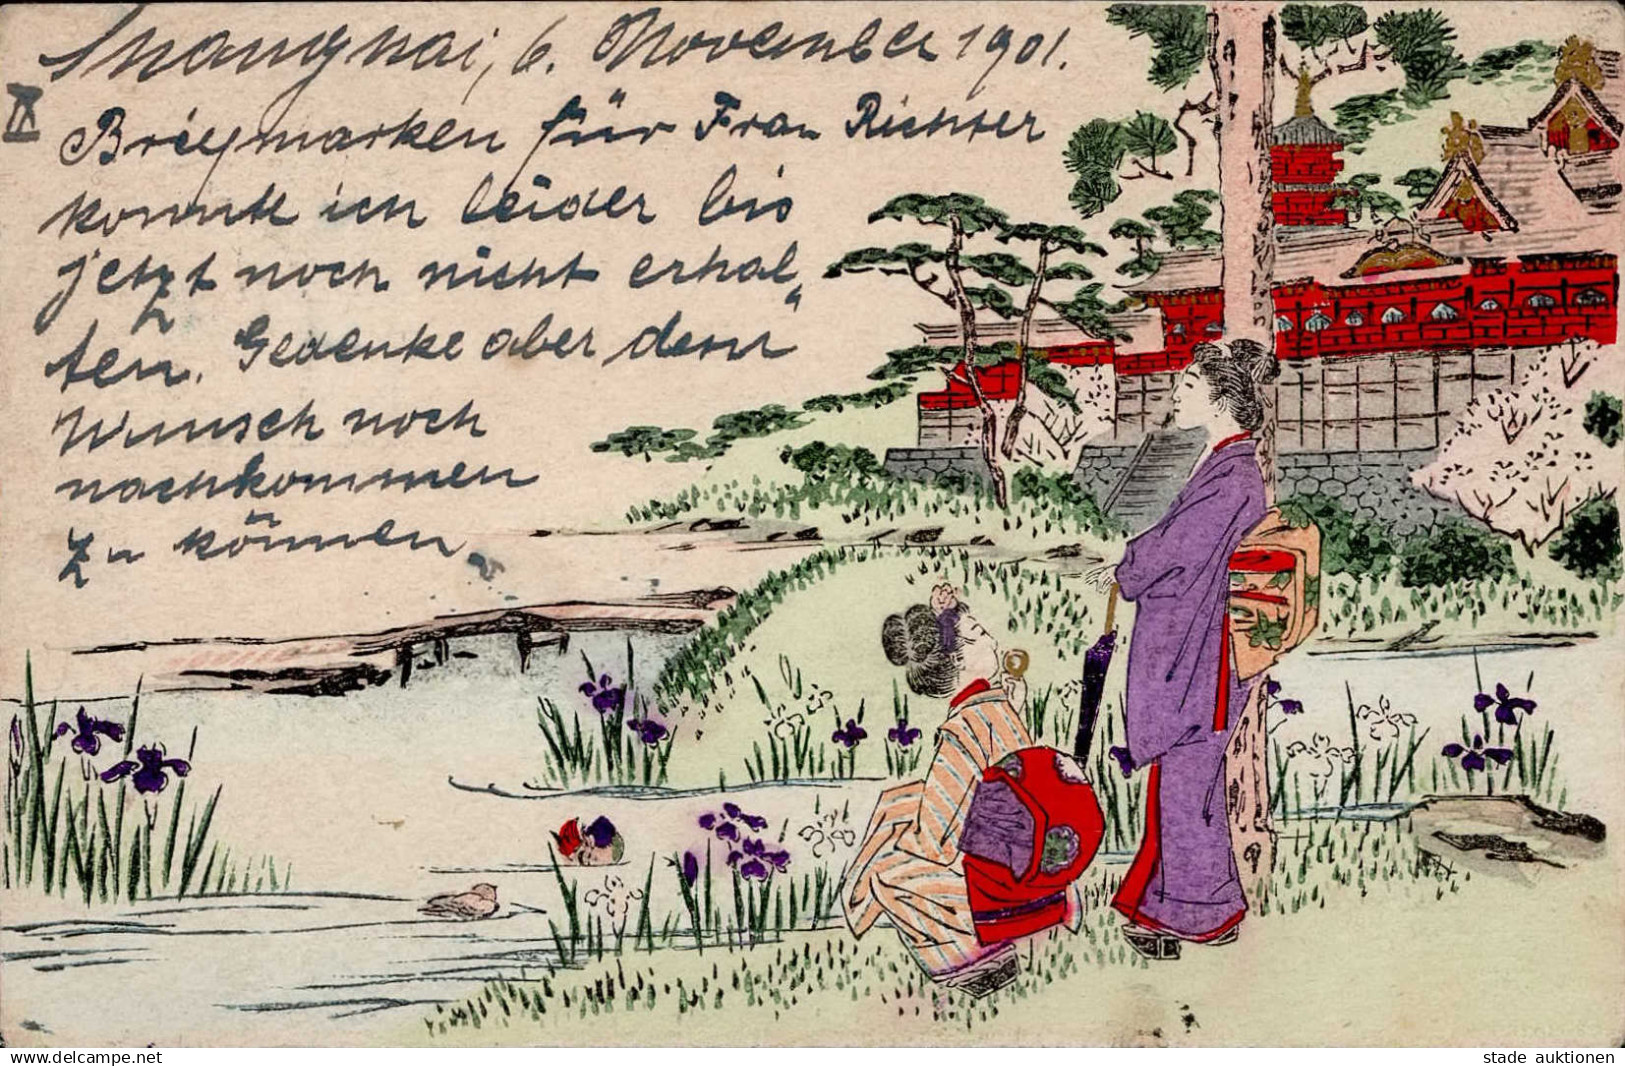 Shanghai, 6. November 1901.
IX
Briefmarken für Frau Richter
konnte ich leider bis
jetzt noch nicht erhal„
ten. Gedenke aber dem
Wunsch noch
nachkommen
zu können.
www.delcampe.net
stade auktionen